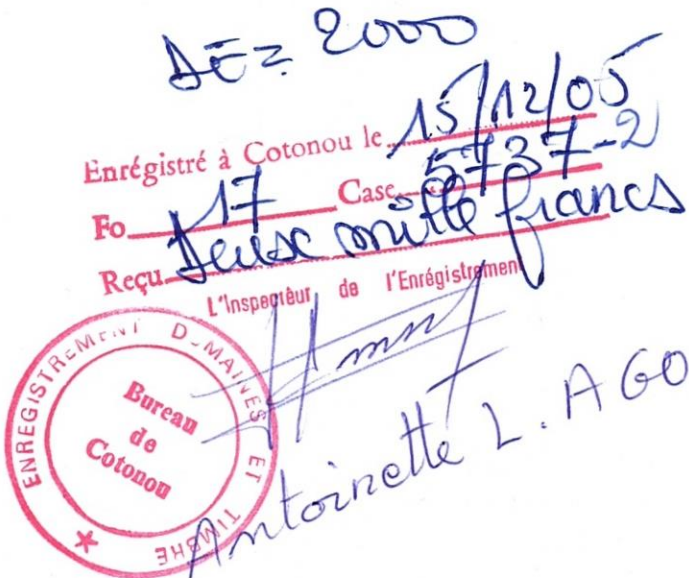 DE = 2000
Enrégistré à Cotonou le 15/12/05
Fo 17 Case 5737-2
Reçu Deux mille francs
L'Inspecteur de l'Enrégistrement
ENREGISTREMENT DOMAINES ET TIMBRE
Bureau
de
Cotonou
Antoinette L. AGO